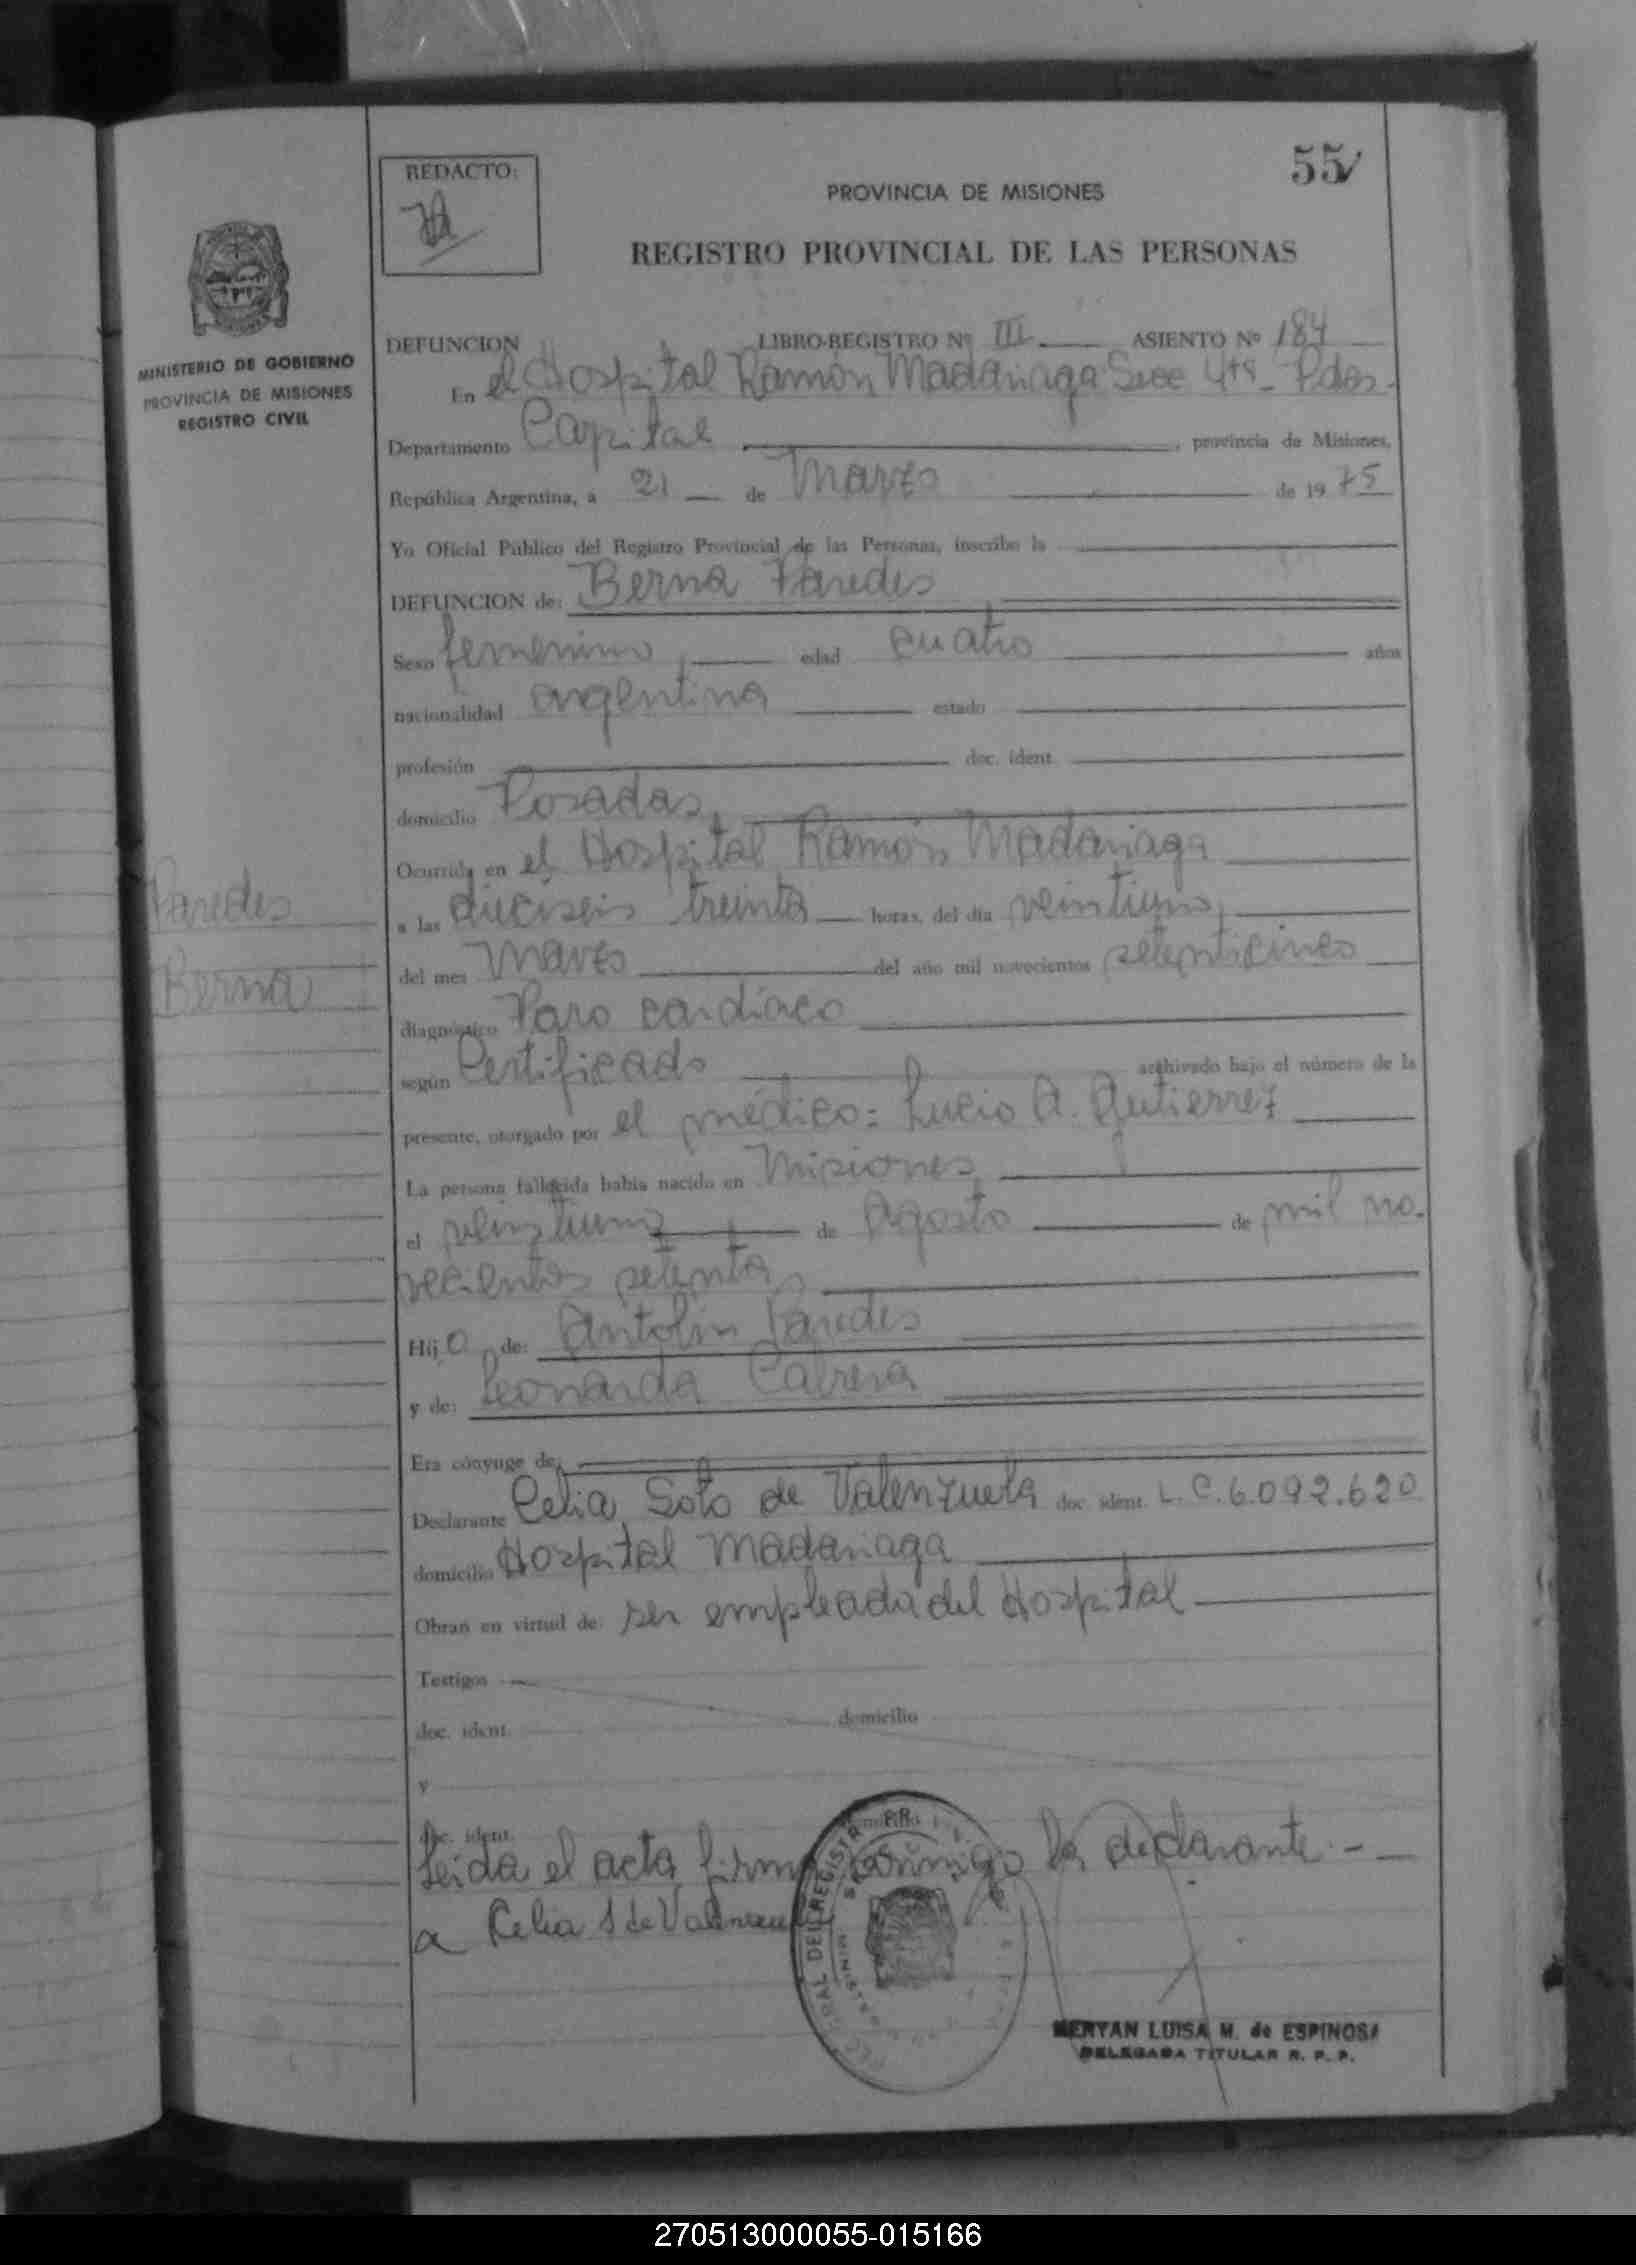 REDACTO:
55
PROVINCIA DE MISIONES
REGISTRO PROVINCIAL DE LAS PERSONAS
MINISTERIO DE GOBIERNO
PROVINCIA DE MISIONES
REGISTRO CIVIL
DEFUNCION LIBRO-REGISTRO Nº III ASIENTO Nº 184
En el Hospital Ramón Madariaga Secc 4ta - Pdas.
Departamento Capital, provincia de Misiones,
República Argentina, a 21 de Marzo de 1975
Yo Oficial Público del Registro Provincial de las Personas, inscribo la
DEFUNCION de: Berna Paredes
Sexo femenino, edad cuatro años
nacionalidad argentina estado
profesión doc. ident.
domicilio Posadas,
Ocurrida en el Hospital Ramón Madariaga
a las dieciseis treinta horas, del día veintiuno,
del mes Marzo del año mil novecientos setenticinco
diagnóstico Paro cardíaco
según Certificado archivado bajo el número de la
presente, otorgado por el médico: Lucio A. Gutierrez
La persona fallecida había nacido en Misiones,
el veintiuno de Agosto de mil no-
vecientos setenta,
Hija de: Antolin Paredes
y de: Leonarda Cabrera
Era cónyuge de:
Declarante Celia Soto de Valenzuela doc. ident. L.C. 6.092.620
domicilio Hospital Madariaga
Obran en virtud de: ser empleada del Hospital
Testigos
doc. ident. domicilio
y
doc. ident. domicilio
Leida el acta firma conmigo la declarante.-
a Celia S de Valenzuela
Paredes
Berna
MERYAN LUISA M. de ESPINOSA
DELEGADA TITULAR R. P. P.
270513000055-015166